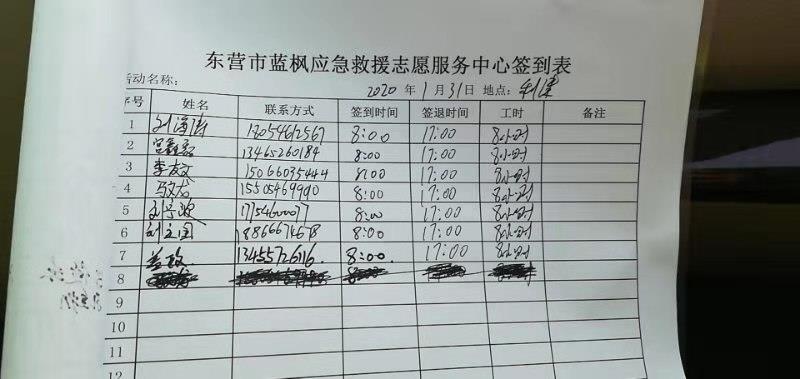 东营市蓝枫应急救援志愿服务中心签到表
活动名称: 2020 年 1 月 31 日 地点: 利津
序号 姓名 联系方式 签到时间 签退时间 工时 备注
1 刘海涛 18054612567 8:00 17:00 8小时
2 13465260184 8:00 17:00 8小时
3 李友文 15066035444 8:00 17:00 8小时
4 15505469990 8:00 17:00 8小时
5 8:00 17:00 8小时
6 刘立国 18866674678 8:00 17:00 8小时
7 13455726116 8:00 17:00 8小时
8
9
10
11
12